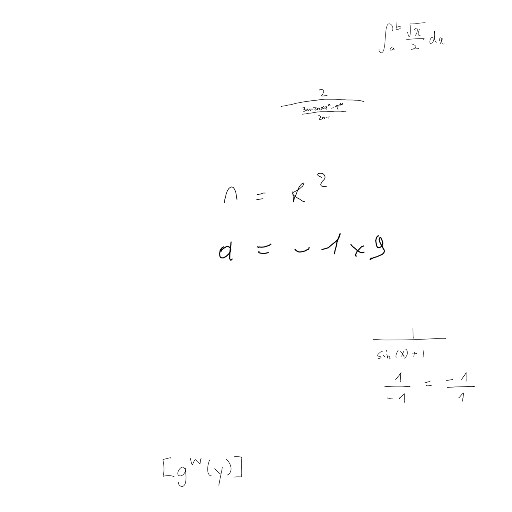 ∫_a^b √x/2 dx
n = k^2
a = -1 x 9
1/(sin(x)+1)
1/-1 = -1/1
[g^w(y)]